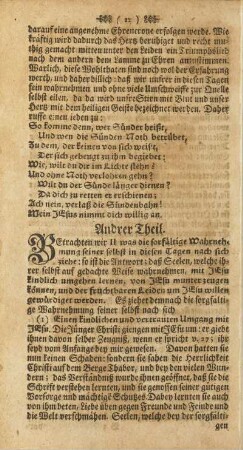 ( 12 )
darauf eine angenehme Ehrencrone erfolgen werde. Wie
kräftig wird dadurch das Hertz beruhiget und recht mu-
thig gemacht mitten unter den Leiden ein Triumphslied
nach dem andern dem Lamme zu Ehren anzustimmen.
Warlich, diese Wohlthaten sind noch wol der Erfahrung
werth, und daher billich; daß wir unsrer in diesen Tagen
fein wahrnehmen und ohne viele Umschweiffe zur Quelle
selbst eilen, da da wird unser Stirn mit Blut und unser
Hertz mit dem heiligen Geiste bezeichnet werden. Daher
nur alles dazu gethan:
So komme denn, wer Sünder heißt,
Und wen die Sünden-Noth betrübet,
Zu dem, der keinen von sich weist,
Der sich gebeugt zu ihm begiebet;
Wie, wilt du dir im Lichte stehn?
Und ohne Noth verlohren gehn?
Wilt du der Sünde länger dienen?
Da dich zu retten er erschienen;
Ach nein, verlaß die Sündenbahn!
Mein JEsus nimmt dich willig an.
Andrer Theil.
Betrachten wir II. was die sorgfältige Wahrneh-
mung seiner selbst in diesen Tagen nach sich
ziehe: so ist die Antwort: daß Seelen, welche ih-
rer selbst auf gedachte Weise wahrnehmen, mit JEsu
kindlich umgehen lernen, von JEsu munter zeugen
können, und der fruchtbaren Leiden um JEsu willen
gewürdiget werden. Es ziehet demnach die sorgfälti-
ge Wahrnehmung seiner selbst nach sich
(1) Einen kindlichen und vertrauten Umgang mit
JEsu. Die Jünger Christi giengen mit JEsu um: er giebt
ihnen davon selber Zeugniß, wenn er spricht v. 27: ihr
seyd vom Anfange bey mir gewesen. Davon hatten sie
nun keinen Schaden; sondern sie sahen die Herrlichkeit
Christi auf dem Berge Thabor, und bey den vielen Wun-
dern; das Verständniß wurde ihnen geöffnet, daß sie die
Schrift verstehen lernten, und sie genossen seiner gütigen
Vorsorge und mächtigen Schutzes. Dabey lernten sie auch
von ihm beten, Liebe üben gegen Freunde und Feinde und
die Welt verschmähen. Seelen, welche bey der sorgfälti-
gen